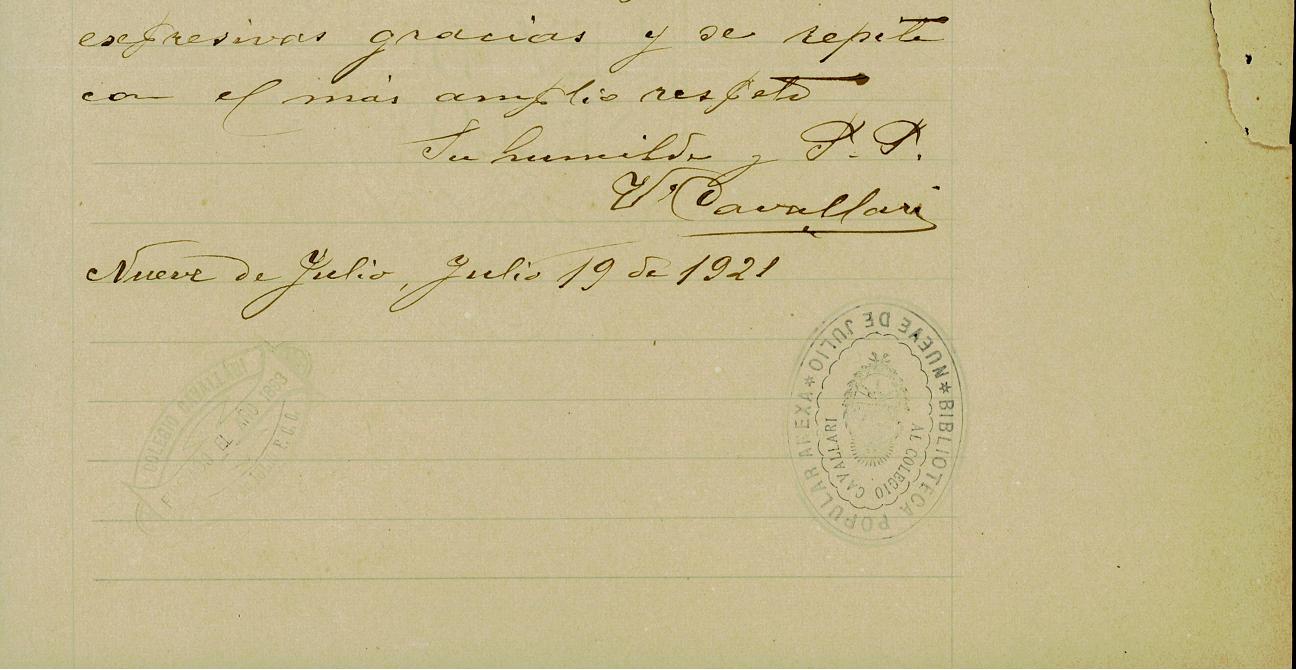 expresivas gracias y se repite
con el más amplio respeto
Su humilde y P. P.
V. Cavallari
Nueve de Julio, Julio 19 de 1921
COLEGIO CAVALLARI
EL AÑO 1883
F. C. O.
BIBLIOTECA POPULAR ANEXA * NUEVE DE JULIO *
AL COLEGIO CAVALLARI